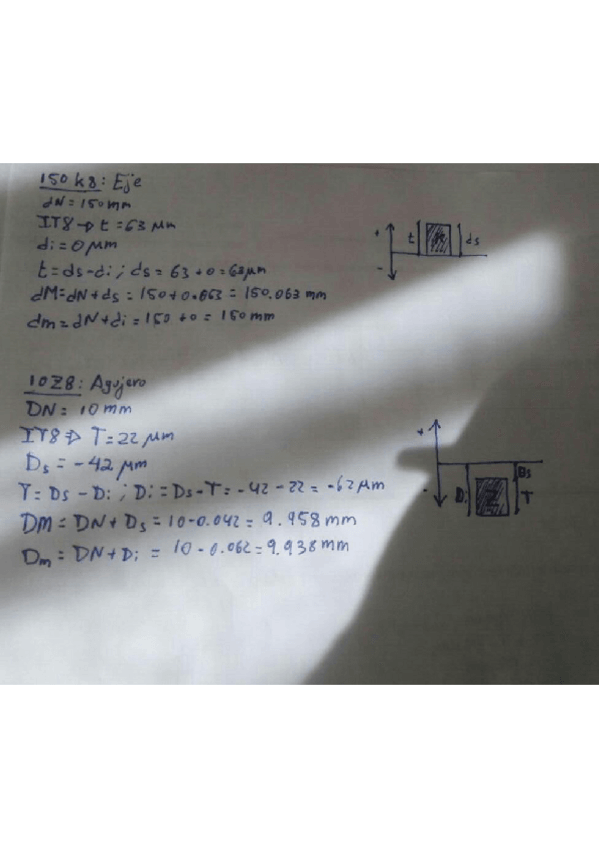 150 k8: Eje
dN = 150 mm
IT8 → t = 63 µm
di = 0 µm
t = ds - di ; ds = 63 + 0 = 63 µm
dM = dN + ds = 150 + 0.063 = 150.063 mm
dm = dN + di = 150 + 0 = 150 mm
+
t
ds
-
10Z8: Agujero
DN = 10 mm
IT8 → T = 22 µm
Ds = -42 µm
T = Ds - Di ; Di = Ds - T = -42 - 22 = -62 µm
DM = DN + Ds = 10 - 0.042 = 9.958 mm
Dm = DN + Di = 10 - 0.062 = 9.938 mm
+
Ds
-
Di
T